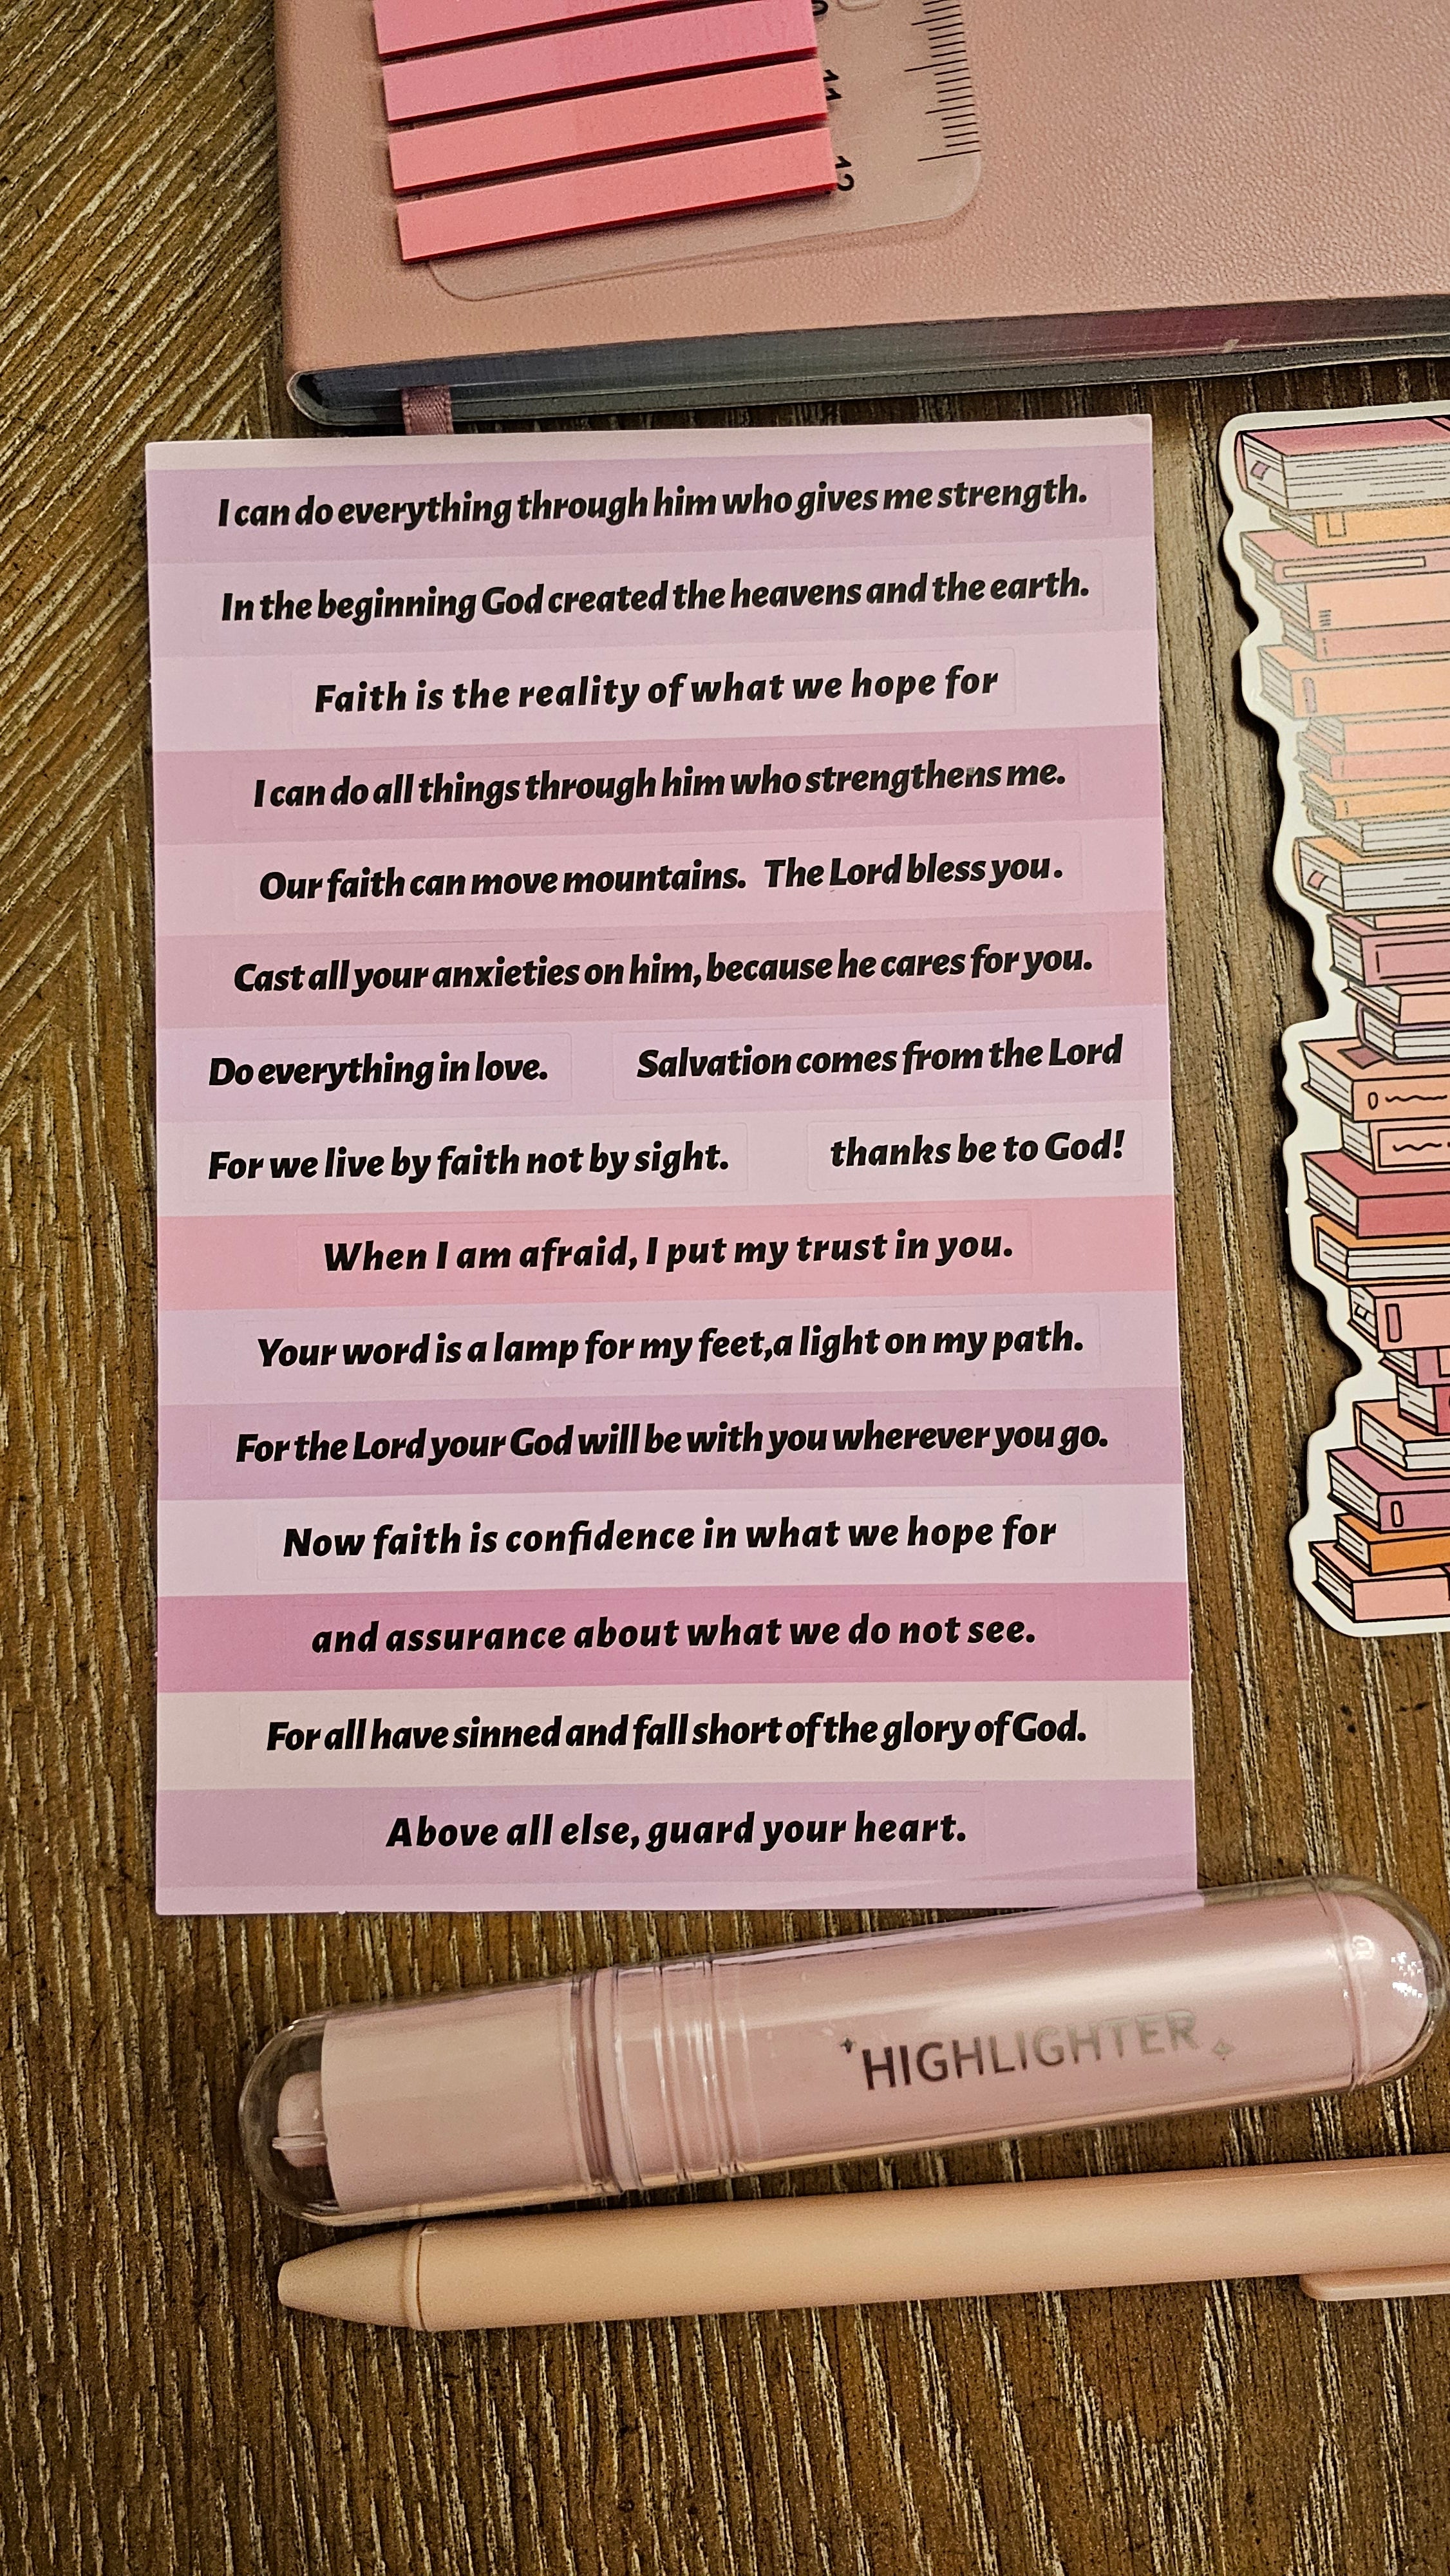 11
12
I can do everything through him who gives me strength.
In the beginning God created the heavens and the earth.
Faith is the reality of what we hope for
I can do all things through him who strengthens me.
Our faith can move mountains. The Lord bless you.
Cast all your anxieties on him, because he cares for you.
Do everything in love. Salvation comes from the Lord
For we live by faith not by sight. thanks be to God!
When I am afraid, I put my trust in you.
Your word is a lamp for my feet,a light on my path.
For the Lord your God will be with you wherever you go.
Now faith is confidence in what we hope for
and assurance about what we do not see.
For all have sinned and fall short of the glory of God.
Above all else, guard your heart.
HIGHLIGHTER